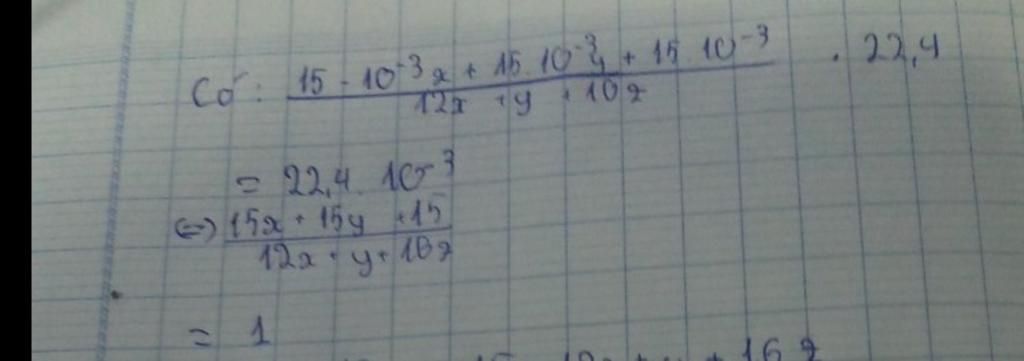 Có: 15 - 10⁻³x + 15.10⁻³y + 15 10⁻³ / 12x + y + 16z . 22,4
= 22,4. 10⁻³
<=> 15x + 15y + 15 / 12x + y + 16z
= 1
+ 16 z